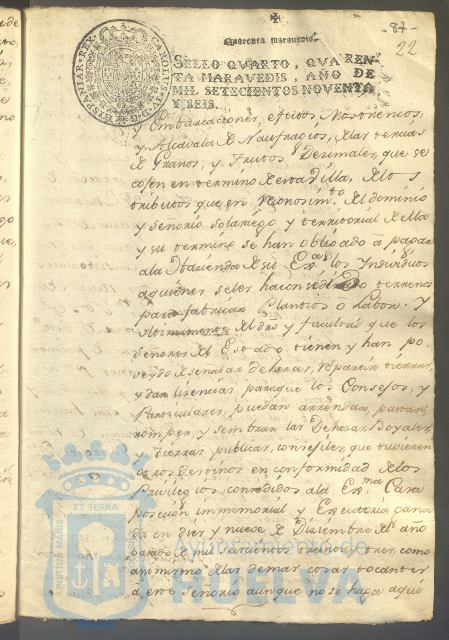 -87-
22
Quarenta maravedis.
SELLO QVARTO, QVAREN-
TA MARAVEDIS, AÑO DE
MIL SETECIENTOS NOVENTA
Y SEIS.
CAROLUS IV D.G. HISPANIAR. REX
y Embarcaciones, efectos Mostrencos,
y Alcavala de Naufragios, delas tercias
de Granos, y frutos Dezimales, que se
cojen en termino de esta Villa. Delos
tributos que en reconosim.to del dominio
y Señorio solariego y territorial de ella
y su termino se han obligado à pagar
ala Hazienda de su Ex.a los Individuos
aquienes seles ha consedido terrenos
para fabricar Plantios ò Labor. Y
ultimamente del dro y facultad que los
señores del Estado tienen y han po
seydo de señalar dehesas, repartir tierras,
y dar lisencias, paraque los Consejos, y
Particulares, puedan arrendar, pastar,
romper, y sembrar las Dehesas Boyales,
y tierras publicas, consejiles, que tuvieren
otros destinos en conformidad delos
Privilegios consedidos ala Ex.ma Casa
posecion immemorial y Executoria gana
da en diez y nueve de Diziembre del año
pasado de mil seiscientos treinta y tres, como
asimismo delas demas cosas tocantes
à este Señorio aunque no se haga aqui
ET TERRÆ
PORTUS MARIS
Ayuntamiento de
HUELVA